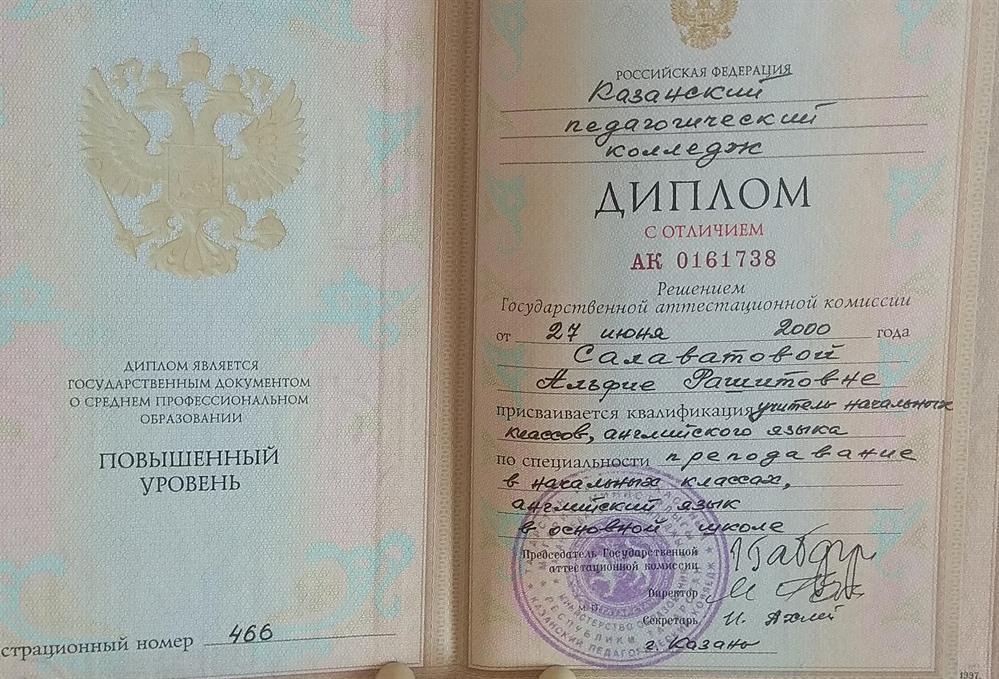 ДИПЛОМ ЯВЛЯЕТСЯ
ГОСУДАРСТВЕННЫМ ДОКУМЕНТОМ
О СРЕДНЕМ ПРОФЕССИОНАЛЬНОМ
ОБРАЗОВАНИИ
ПОВЫШЕННЫЙ
УРОВЕНЬ
страционный номер 466
РОССИЙСКАЯ ФЕДЕРАЦИЯ
Казанский
педагогический
колледж
ДИПЛОМ
С ОТЛИЧИЕМ
АК 0161738
Решением
Государственной аттестационной комиссии
от 27 июня 2000 года
Салаватовой
Альфие Рашитовне
присваивается квалификация учитель начальных
классов, английского языка
по специальности преподавание
в начальных классах,
английский язык
в основной школе
Председатель Государственной
аттестационной комиссии
Директор
Секретарь
г. Казань
1997.